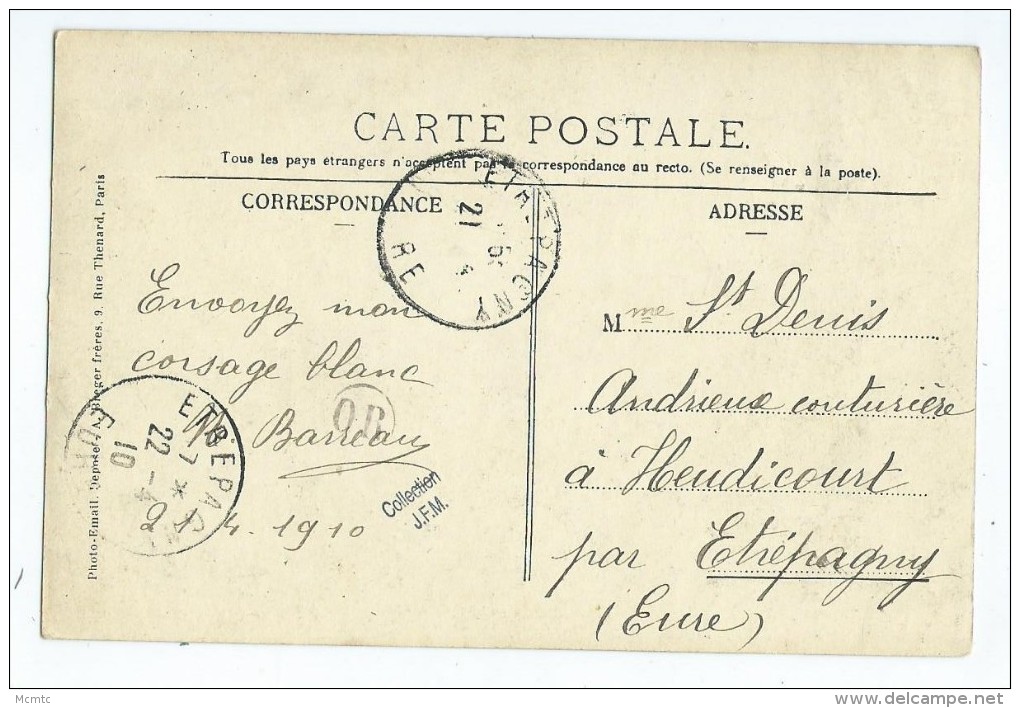 CARTE POSTALE.
Tous les pays étrangers n'acceptent pas la correspondance au recto. (Se renseigner à la poste).
CORRESPONDANCE
ADRESSE
Envoyez mon
corsage blanc
Barreau
21 4. 1910
Mme St Denis
Andrieux couturière
à Heudicourt
par Etrépagny
(Eure)
ETREPAGNY
21
ETREPAGNY
7 *
22 - 4
10
EURE
OR
Collection
J.F.M.
Photo-Email. Déposé, A. Breger frères, 9, Rue Thenard, Paris
Mcmtc
www.delcampe.net